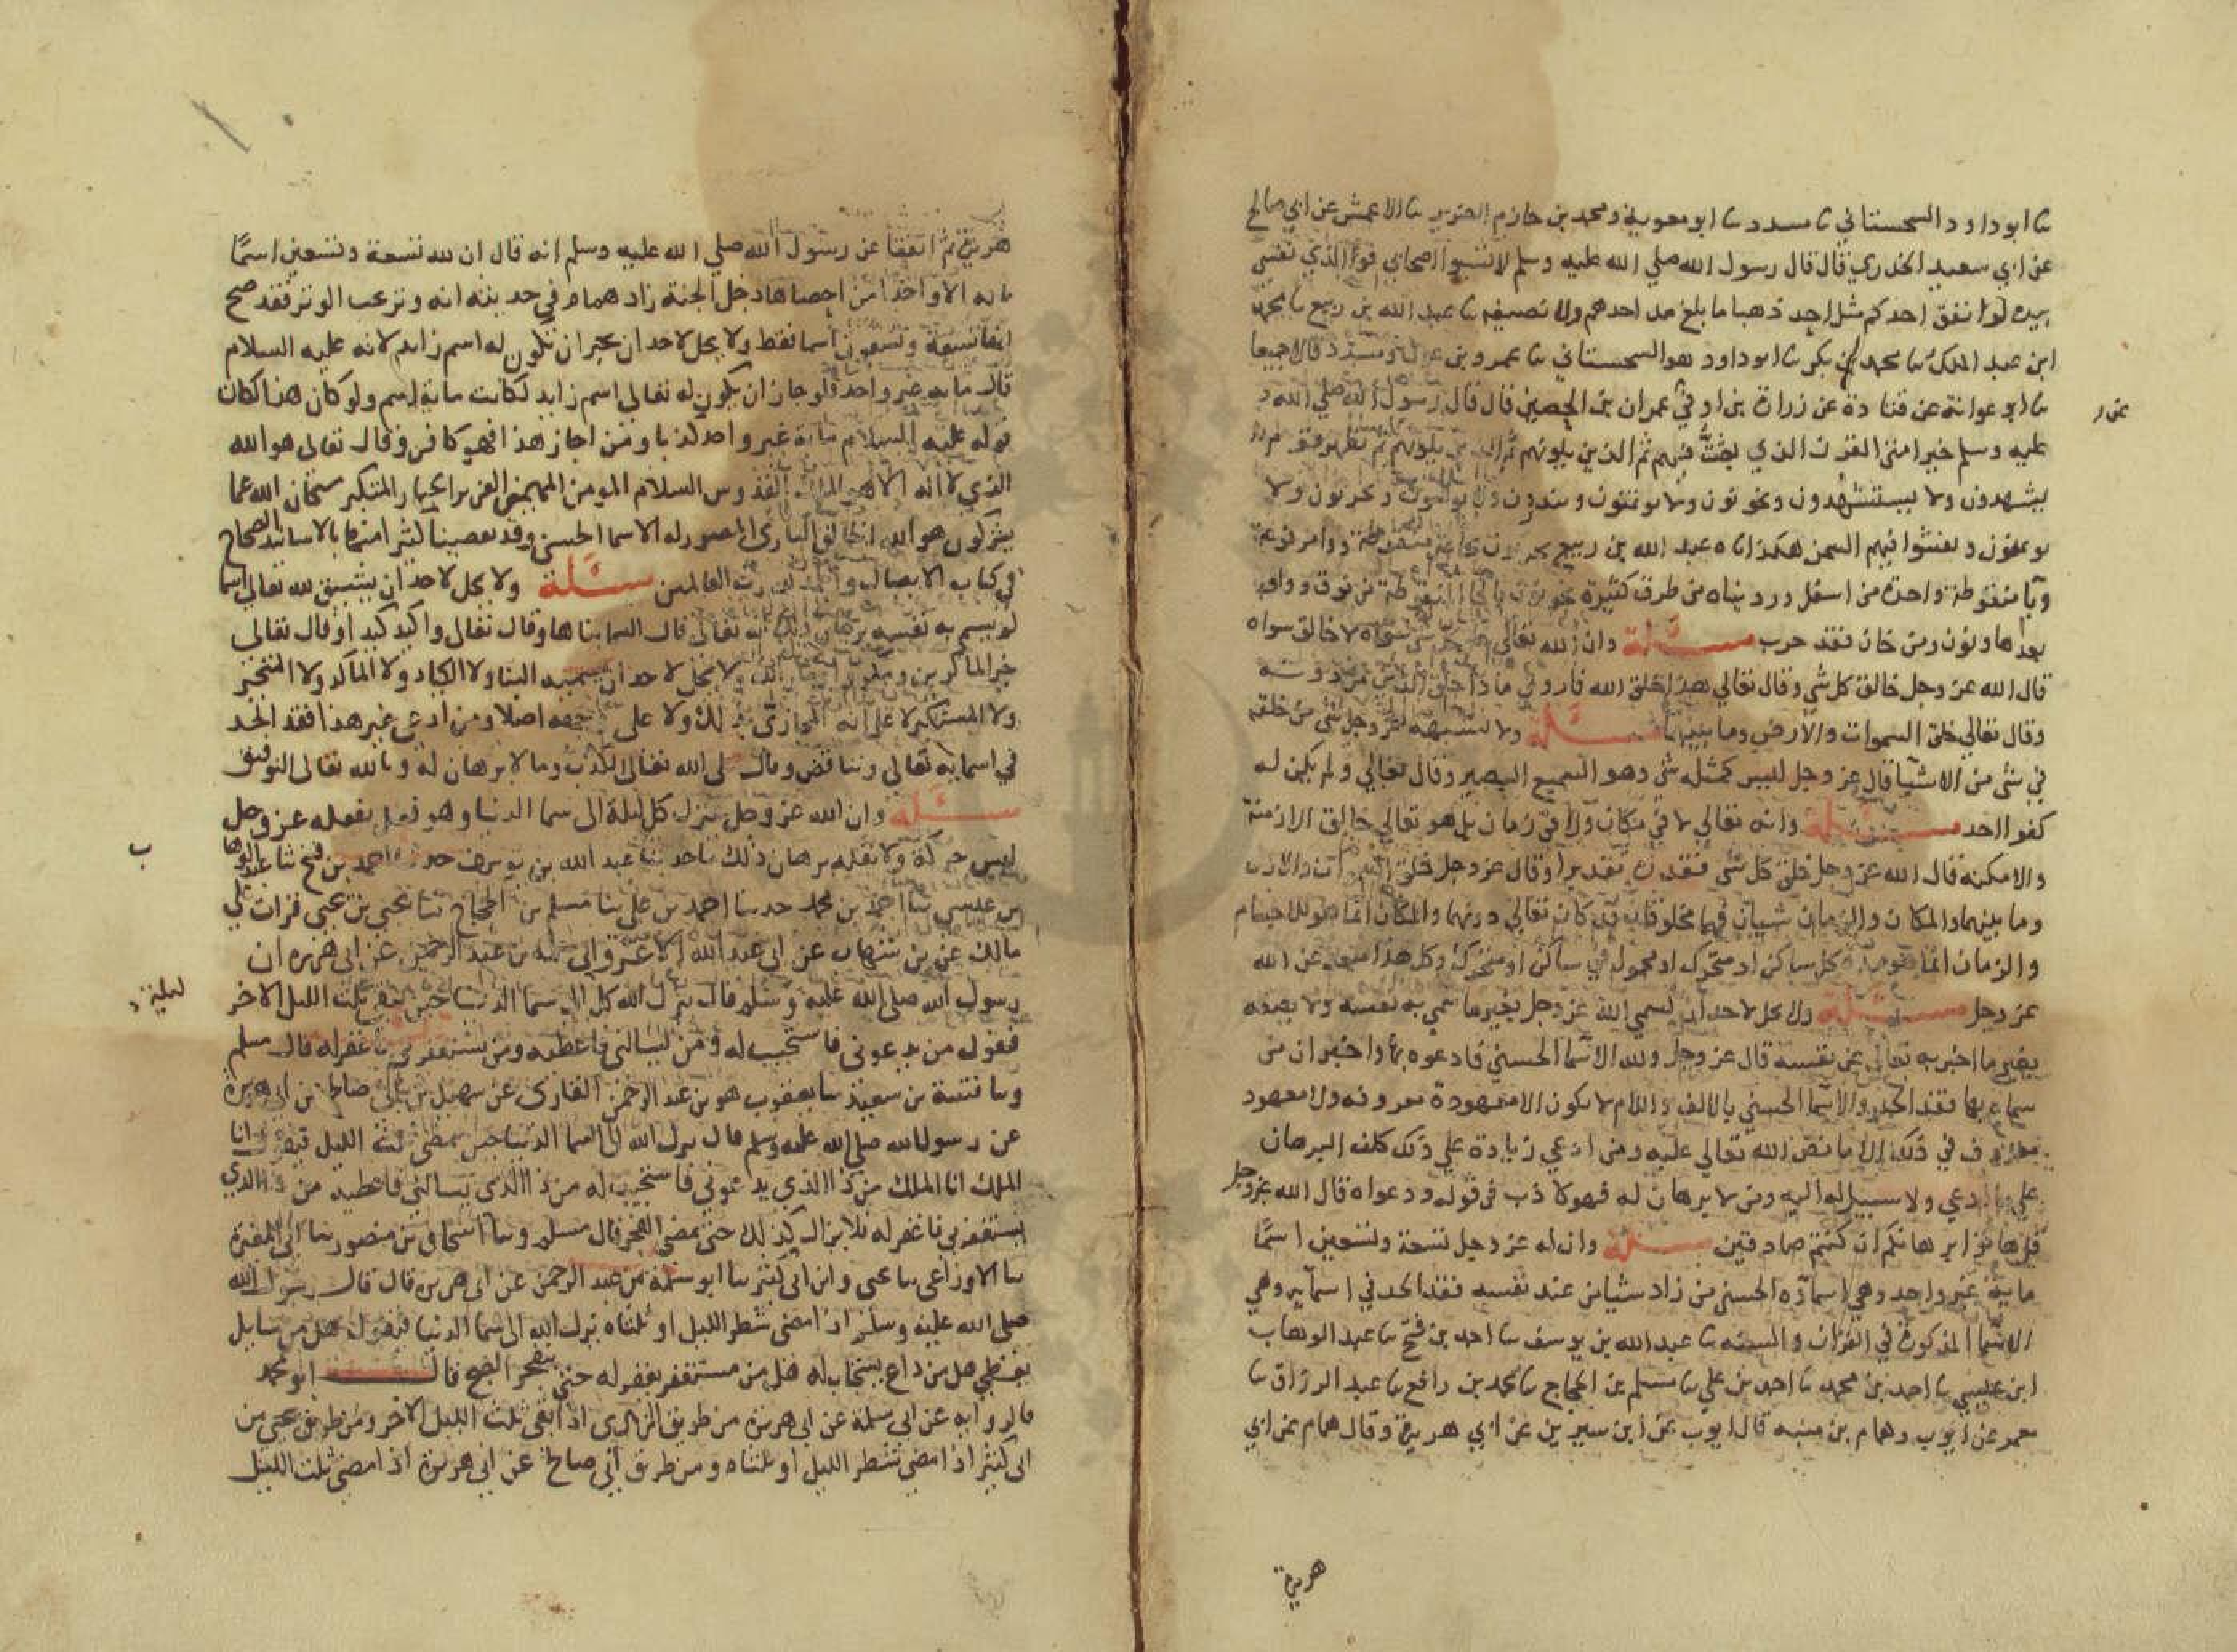 ثنا ابو داود السجستاني ثنا مسدد ثنا ابو معوية ومحمد بن خازم الضرير ثنا الاعمش عن ابي صالح
عن ابي سعيد الخدري قال قال رسول الله صلي الله عليه وسلم لا تسبوا اصحابي فوالذي نفسي
بيده لو انفق احدكم مثل احد ذهبا ما بلغ مد احدهم ولا نصيفه ثنا عبد الله بن ربيع ثنا محمد
ابن عبد الملك ثنا محمد بن بكر ثنا ابو داود هو السجستاني ثنا عمرو بن عون ومسدد قالا جميعا
ثنا ابو عوانة عن قتادة عن زرارة بن اوفي عمران بن الحصين قال قال رسول الله صلي الله
عن
عليه وسلم خير امتي القرن الذي بعثت فيهم ثم الذين يلونهم ثم الذين يلونهم ثم يظهر قوم
يشهدون ولا يستشهدون ويخونون ولا يوتمنون وينذرون ولا يوفون ويحربون ولا
يوتمنون ويفشوا فيهم السمن هكذا ناه عبد الله بن ربيع
وبا منقوطة واحدة من اسفل ورويناه من طرق كثيرة يخونون بالخا المنقوطة من فوق وواو
بعدها ونون ومن خان فقد حرب مسئلة وان الله تعالي سواه لا خالق سواه
قال الله عز وجل خالق كل شي وقال تعالي هذا خلق الله فاروني ماذا خلق الذين من دونه
وقال تعالي خلق السموات والارض وما بينهما مسئلة ولا يشبهه عز وجل شي من خلقه
في شي من الاشيا قال عز وجل ليس كمثله شي وهو السميع البصير وقال تعالي ولم يكن له
كفوا احد مسئلة وانه تعالي لا في مكان ولا في زمان بل هو تعالي خالق الازمنة
والامكنه قال الله عز وجل خلق كل شي فقدره تقديرا وقال عز وجل خلق السموات والارض
وما بينهما والمكان والزمان شيان فهما مخلوقان قد كان تعالي دونهما والمكان انما هو للاجسام
والزمان انما هو مدة كل ساكن او متحرك او محمول في ساكن او متحرك وكل هذا مبعد عن الله
عز وجل مسئلة ولا يحل لاحد ان يسمي الله عز وجل بغير ما سمي به نفسه ولا يصفه
بغير ما اخبر به تعالي عن نفسه قال عز وجل ولله الاسما الحسني فادعوه بها واخبر ان من
سماه بها فقد الحد والاسما الحسني بالالف واللام لا يكون الا معهودة معروفه ولا معهود
معروف في ذلك الا ما نص الله تعالي عليه ومن ادعي زيادة علي ذلك كلف البرهان
علي ما ادعي ولا سبيل له اليه ومن لا برهان له فهو كاذب في قوله ودعواه قال الله عز وجل
قل هاتوا برهانكم ان كنتم صادقين مسئلة وان له عز وجل تسعة وتسعين اسمًا
ماية غير واحد وهي اسماؤه الحسني من زاد شيا من عند نفسه فقد الحد في اسمايه وهي
الاسما المذكورة في القران والسنه ثنا عبد الله بن يوسف ثنا احمد بن فتح ثنا عبد الوهاب
ابن عيسي ثنا احمد بن محمد ثنا احمد بن علي ثنا مسلم بن الحجاج ثنا محمد بن رافع ثنا عبد الرزاق ثنا
معمر عن ايوب وهمام بن منبه قال ايوب عن ابن سيرين عن ابي هريرة وقال همام عن ابي
هريرة
هريرة ثم اتفقا عن رسول الله صلي الله عليه وسلم انه قال ان لله تسعة وتسعين اسمًا
مايه الا واحدا من احصاها دخل الجنة زاد همام في حديثه انه وتر يحب الوتر فقد صح
انها تسعة وتسعون اسما فقط ولا يحل لاحد ان يجيز ان تكون له اسم زايد لانه عليه السلام
قال مايه غير واحد ولو جاز ان يكون له تعالى اسم زايد لكانت ماية اسم ولو كان هذا لكان
قوله عليه السلام ماية غير واحد كذبا ومن اجاز هذا فهو كافر وقال تعالى هو الله
الذي لا اله الا هو الملك القدوس السلام المومن المهيمن العزيز الجبار المتكبر سبحان الله عما
يشركون هو الله الخالق البارئ المصور له الاسما الحسنى وقد تقصينا كثيرا منها بالاسانيد الصحاح
في كتاب الايصال والحمد لله رب العالمين مسئلة ولا يحل لاحد ان يشتق لله تعالى اسما
لم يسم به نفسه برهان ذلك انه تعالى قال السما بناها وقال تعالى واكيد كيدا وقال تعالى
خير الماكرين ولا يحل لاحد ان يسميه البنا ولا الكياد ولا الماكر ولا المتجبر
ولا المستكبر لا على انه المجازي بذلك ولا على وجه اصلا ومن ادعى غير هذا فقد الحد
في اسمايه تعالى وتناقض وقال على الله تعالى الكذب وما لا برهان له وبالله تعالى التوفيق
مسئلة وان الله عز وجل ينزل كل ليلة الى سما الدنيا وهو فعل يفعله عز وجل
ليس حركة ولا نقله برهان ذلك ما حدثنا عبد الله بن يوسف حدثنا احمد بن فتح ثنا عبد الوهاب
ب
بن عيسى ثنا احمد بن محمد حدثنا احمد بن علي ثنا مسلم بن الحجاج ثنا يحيى بن يحيى قرات على
مالك عن بن شهاب عن ابي عبد الله الاغر وابي سلمة بن عبد الرحمن عن ابي هريره ان
رسول الله صلى الله عليه وسلم قال ينزل الله كل الى سما الدنيا حين يبقى ثلث الليل الاخر
ليلة
فيقول من يدعوني فاستجيب له ومن يسالني فاعطيه ومن يستغفرني فاغفر له قال مسلم
وثنا قتيبة بن سعيد ثنا يعقوب هو بن عبد الرحمن القاري عن سهيل بن ابي صالح عن ابي هريرة
عن رسول الله صلى الله عليه وسلم قال ينزل الله الى السما الدنيا حين يمضي ثلث الليل فيقول انا
الملك انا الملك من ذا الذي يدعوني فاستجيب له من ذا الذي يسالني فاعطيه من ذا الذي
يستغفرني فاغفر له فلا يزال كذلك حتى يمضي الفجر قال مسلم وثنا اسحاق بن منصور ثنا ابو المغيرة
ثنا الاوزاعي ثنا يحيى وابن ابي كثير ثنا ابو سلمة بن عبد الرحمن عن ابي هريره قال قال رسول الله
صلى الله عليه وسلم اذا مضى شطر الليل او ثلثاه ينزل الله الى سما الدنيا فيقول هل من سايل
يعطى هل من داع يستجاب له هل من مستغفر يغفر له حتى ينفجر الصبح قال ابو محمد
قال روايه عن ابي سلمة عن ابي هريرة من طريق الزهري اذا بقى ثلث الليل الاخر ومن طريق يحيى بن
ابي كثير اذا مضى شطر الليل او ثلثاه ومن طريق ابي صالح عن ابي هريرة اذا مضى ثلث الليل